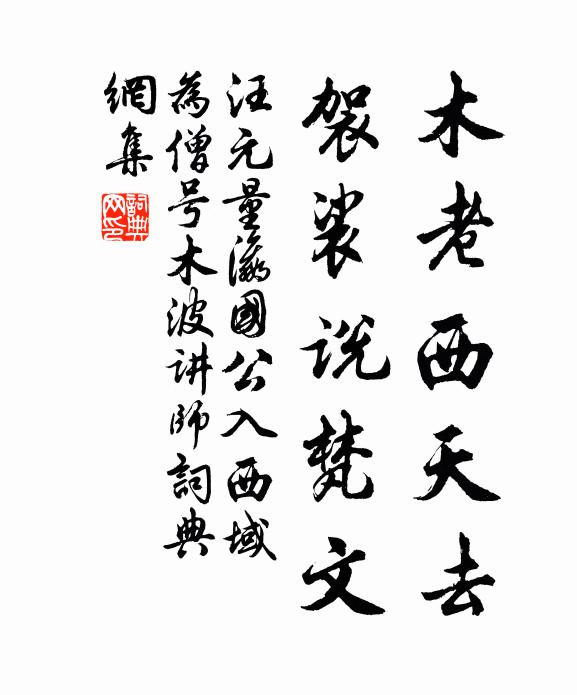 木老西天去
袈裟说梵文
汪元量瀛國公入西域
為僧号木波讲師詞典
網集
詞典网印